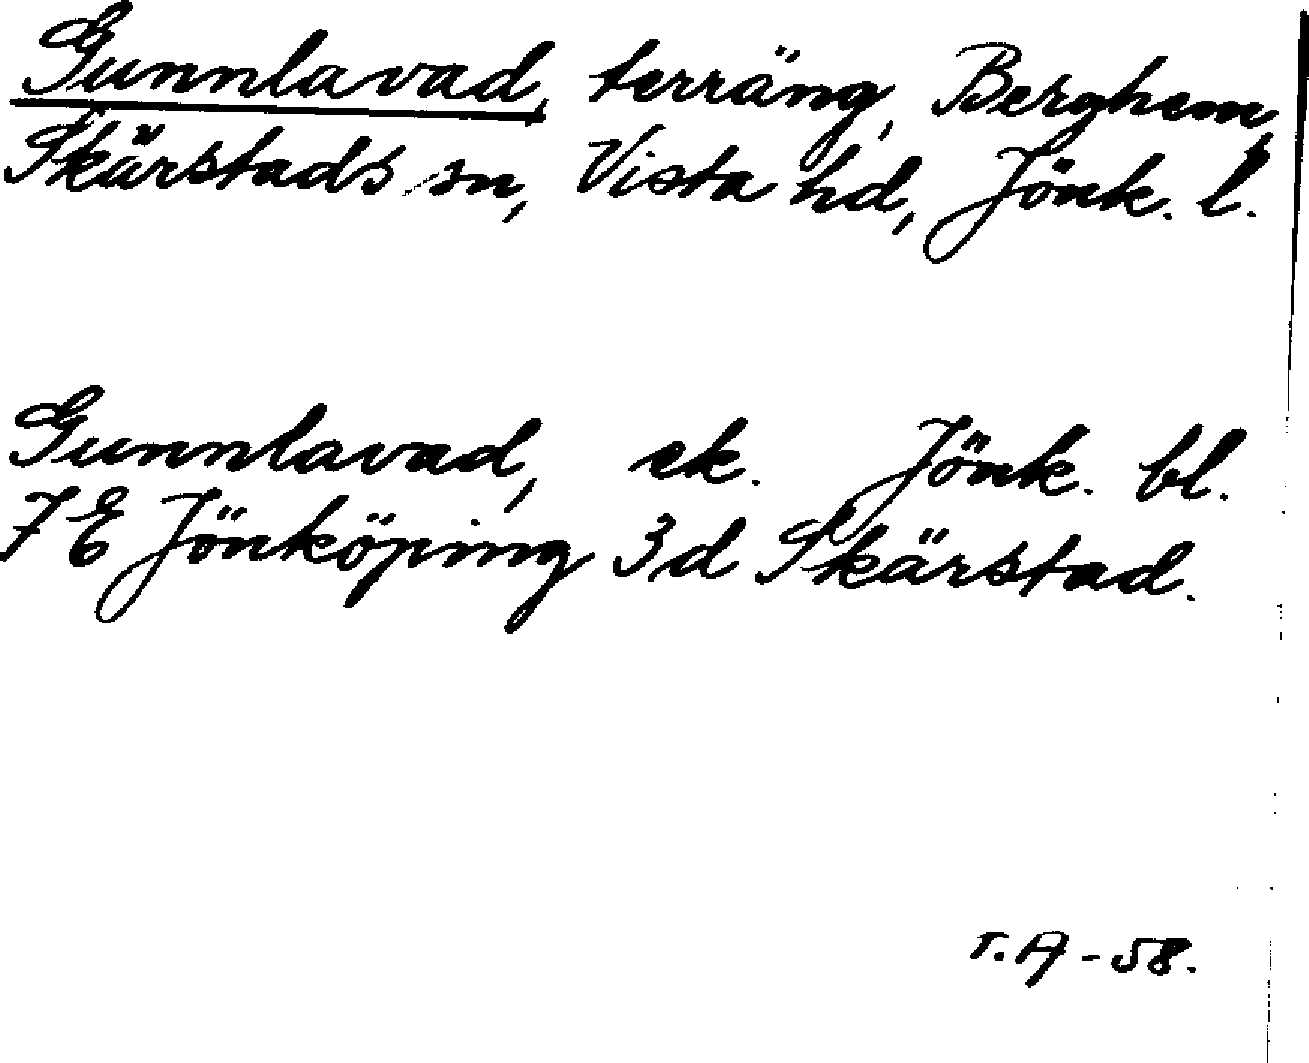 Gunnlavad, terräng, Berghem,
Skärstads sn, Vista hd, Jönk. l.
Gunnlavad, ek. Jönk. bl.
7E Jönköping 3d Skärstad.
T.A -58.